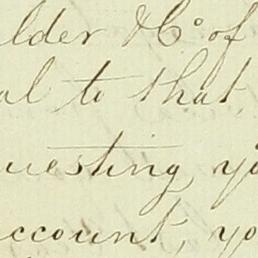 lder & Co of
al to that
uesting yo
ccount, yo